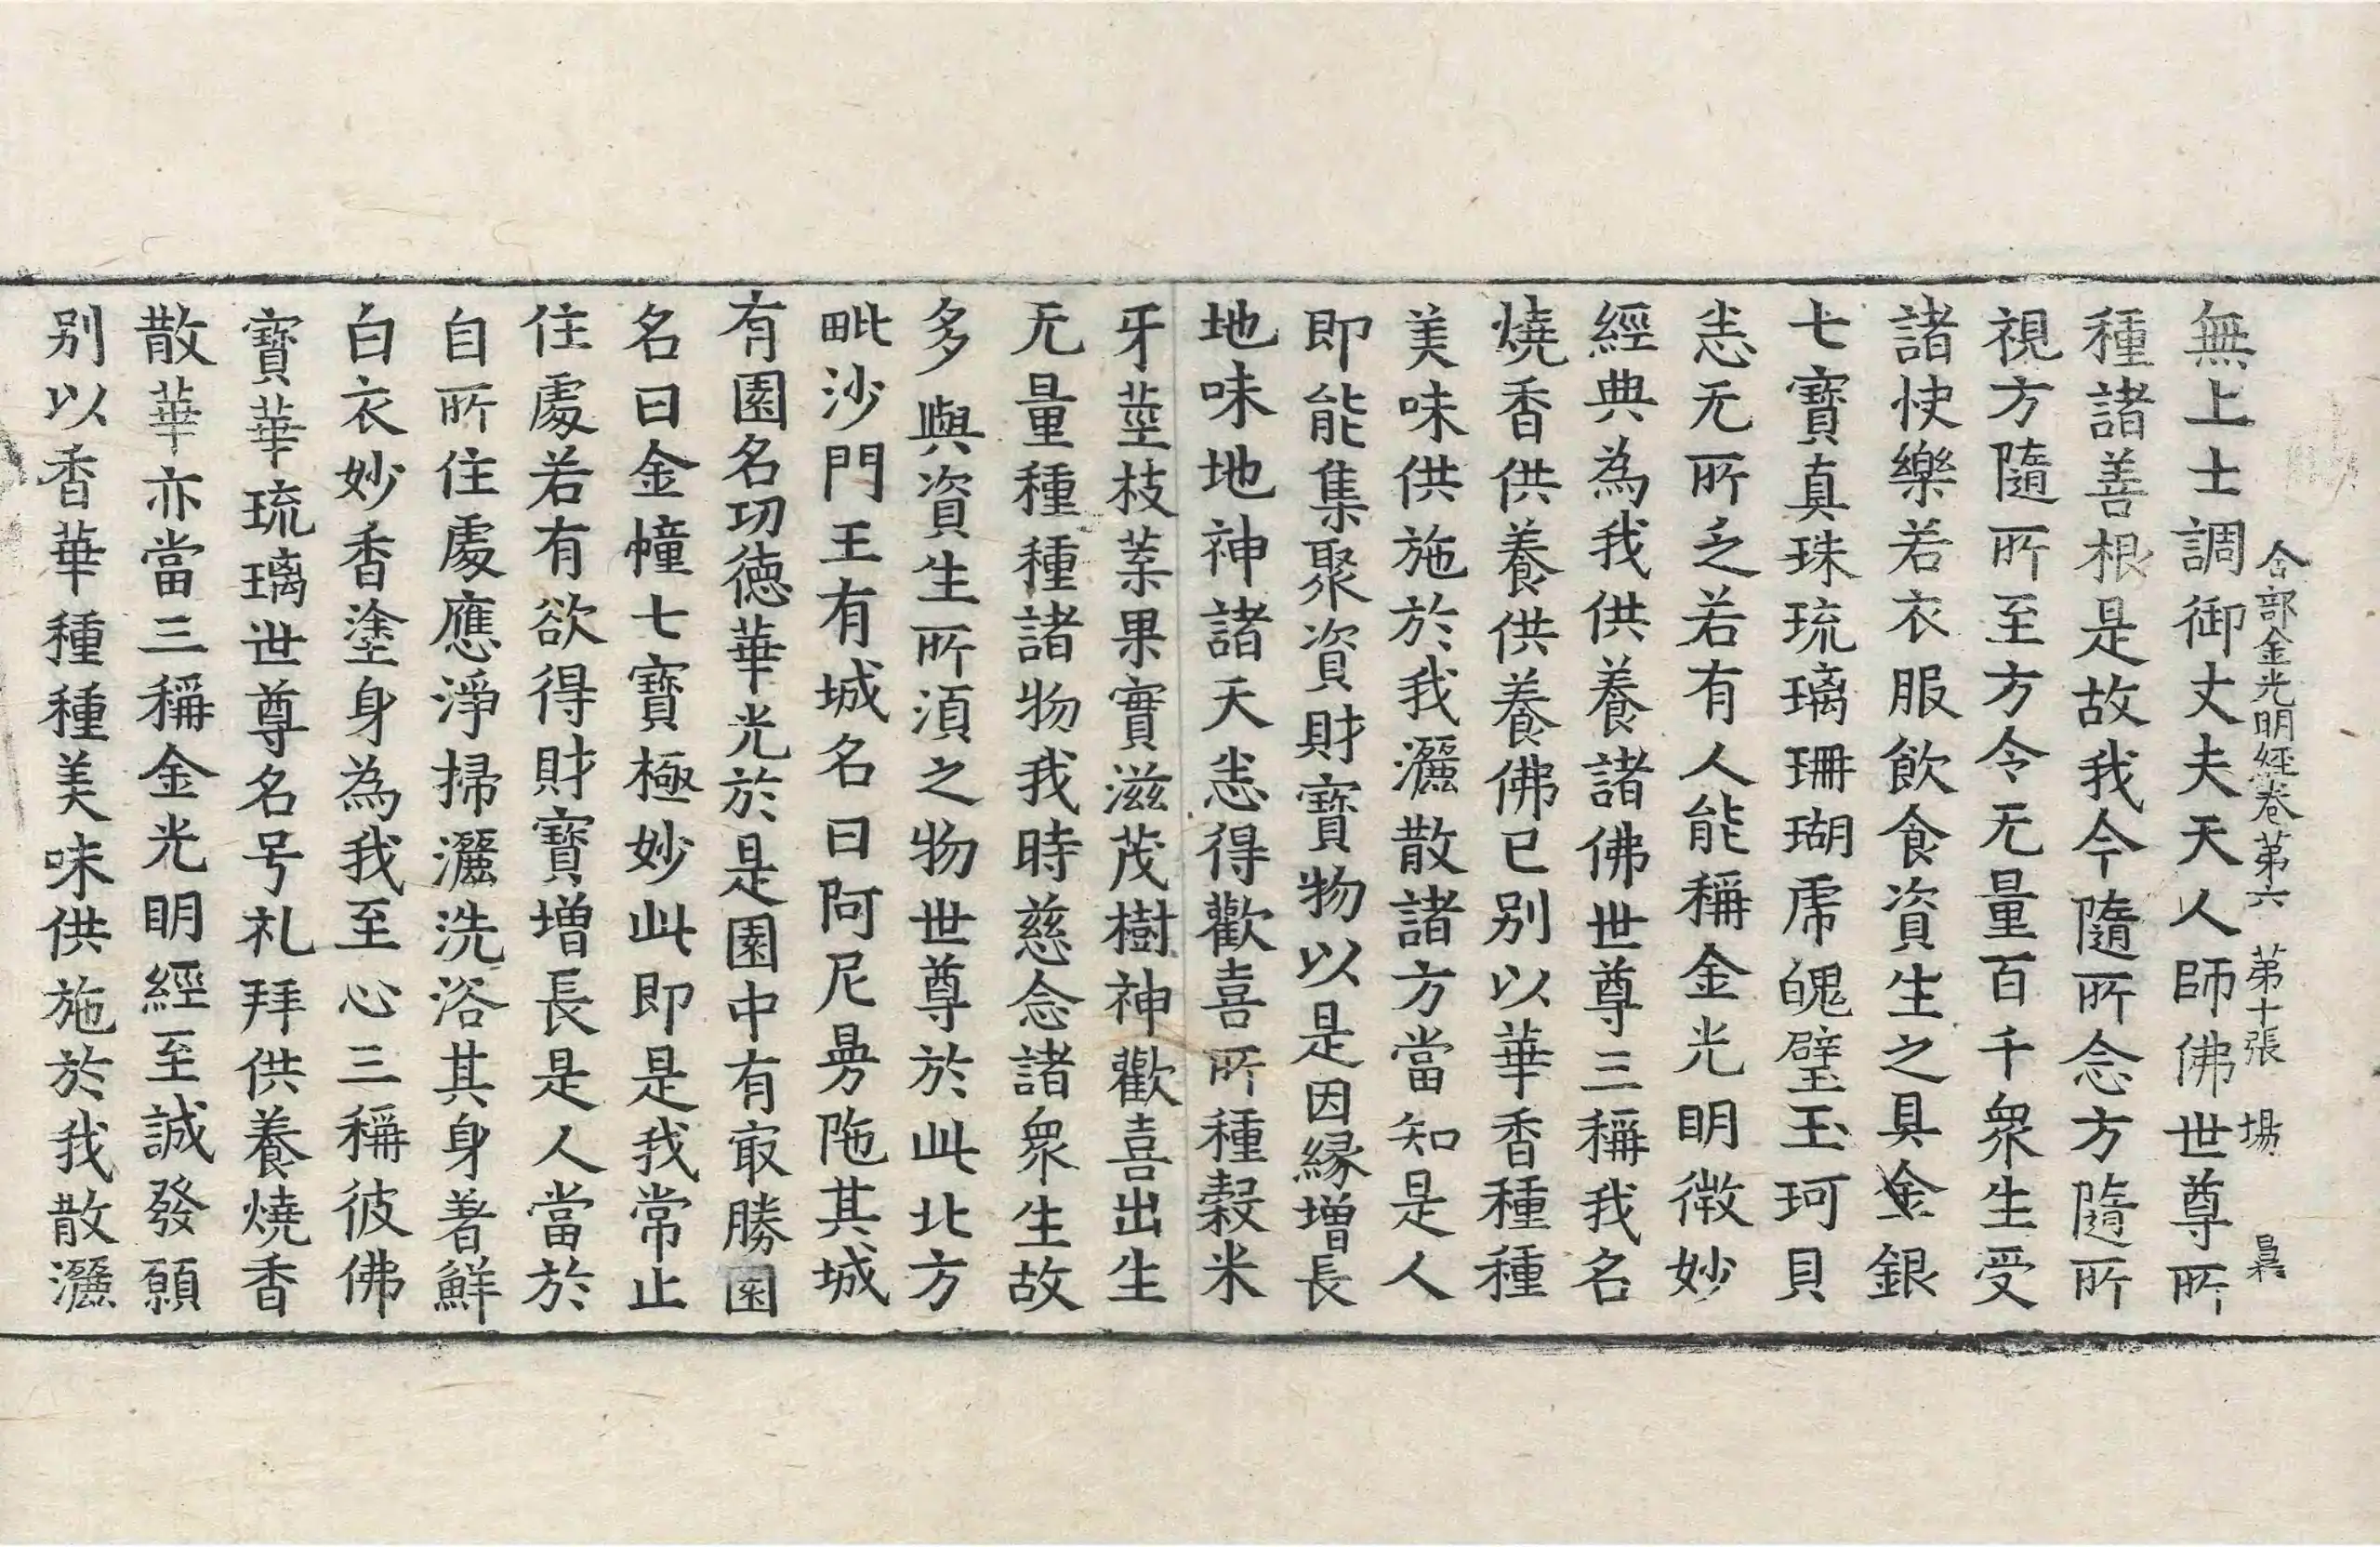 合部金光明經卷第六 第十張 場
無上士調御丈夫天人師佛世尊所
種諸善根是故我今隨所念方隨所
視方隨所至方令无量百千衆生受
諸快樂若衣服飲食資生之具金銀
七寶真珠琉璃珊瑚虎魄璧玉珂貝
恙无所乏若有人能稱金光明微妙
經典為我供養諸佛世尊三稱我名
燒香供養供養佛已别以華香種種
美味供施於我灑散諸方當知是人
即能集聚資財寶物以是因縁增長
地味地神諸天恙得歡喜所種穀米
牙莖枝葉果實滋茂樹神歡喜出生
无量種種諸物我時慈念諸衆生故
多與資生所湏之物世尊於此北方
毗沙門王有城名曰阿尼曼陁其城
有園名功德華光於是園中有㝡勝園
名曰金幢七寶極妙此即是我常止
住處若有欲得財寶增長是人當於
自所住處應淨掃灑洗浴其身著鮮
白衣妙香塗身為我至心三稱彼佛
寶華琉璃世尊名号礼拜供養燒香
散華亦當三稱金光明經至誠發願
别以香華種種美味供施於我散灑